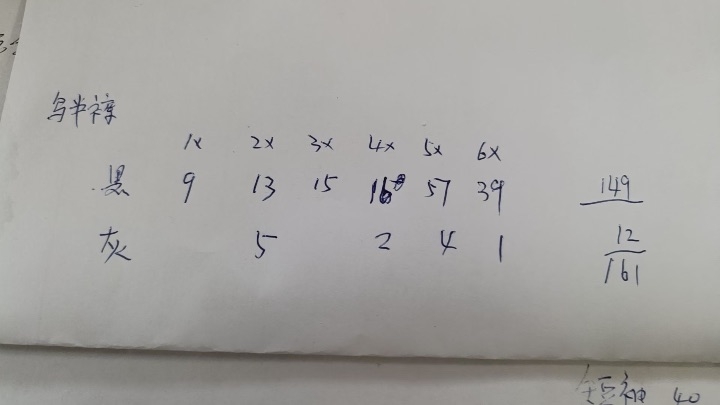 半裤
1x 2x 3x 4x 5x 6x
黑 9 13 15 16 57 39 149
灰 5 2 4 1 12
161
短袖 40